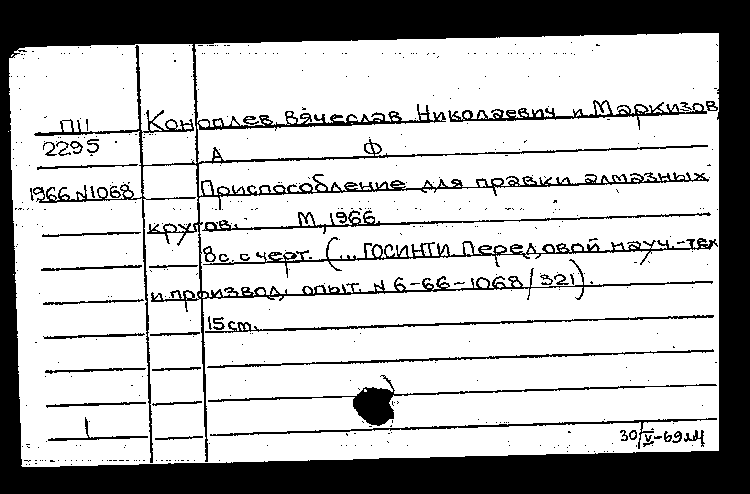 П11 Коноплев, Вячеслав Николаевич и Маркизов,
2295 А Ф.
1966 N1068 Приспособление для правки алмазных
кругов. М, 1966.
8с. с черт. (... ГОСИНТИ. Передовой науч.-тех
и производ. опыт. N 6-66-1068/321).
15 см.
1
30/V-69